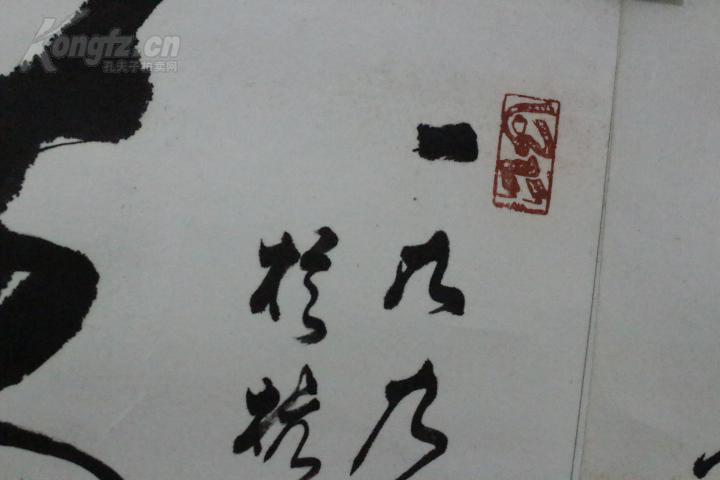 Kongfz.cn
孔夫子拍卖网
一九九
於杭